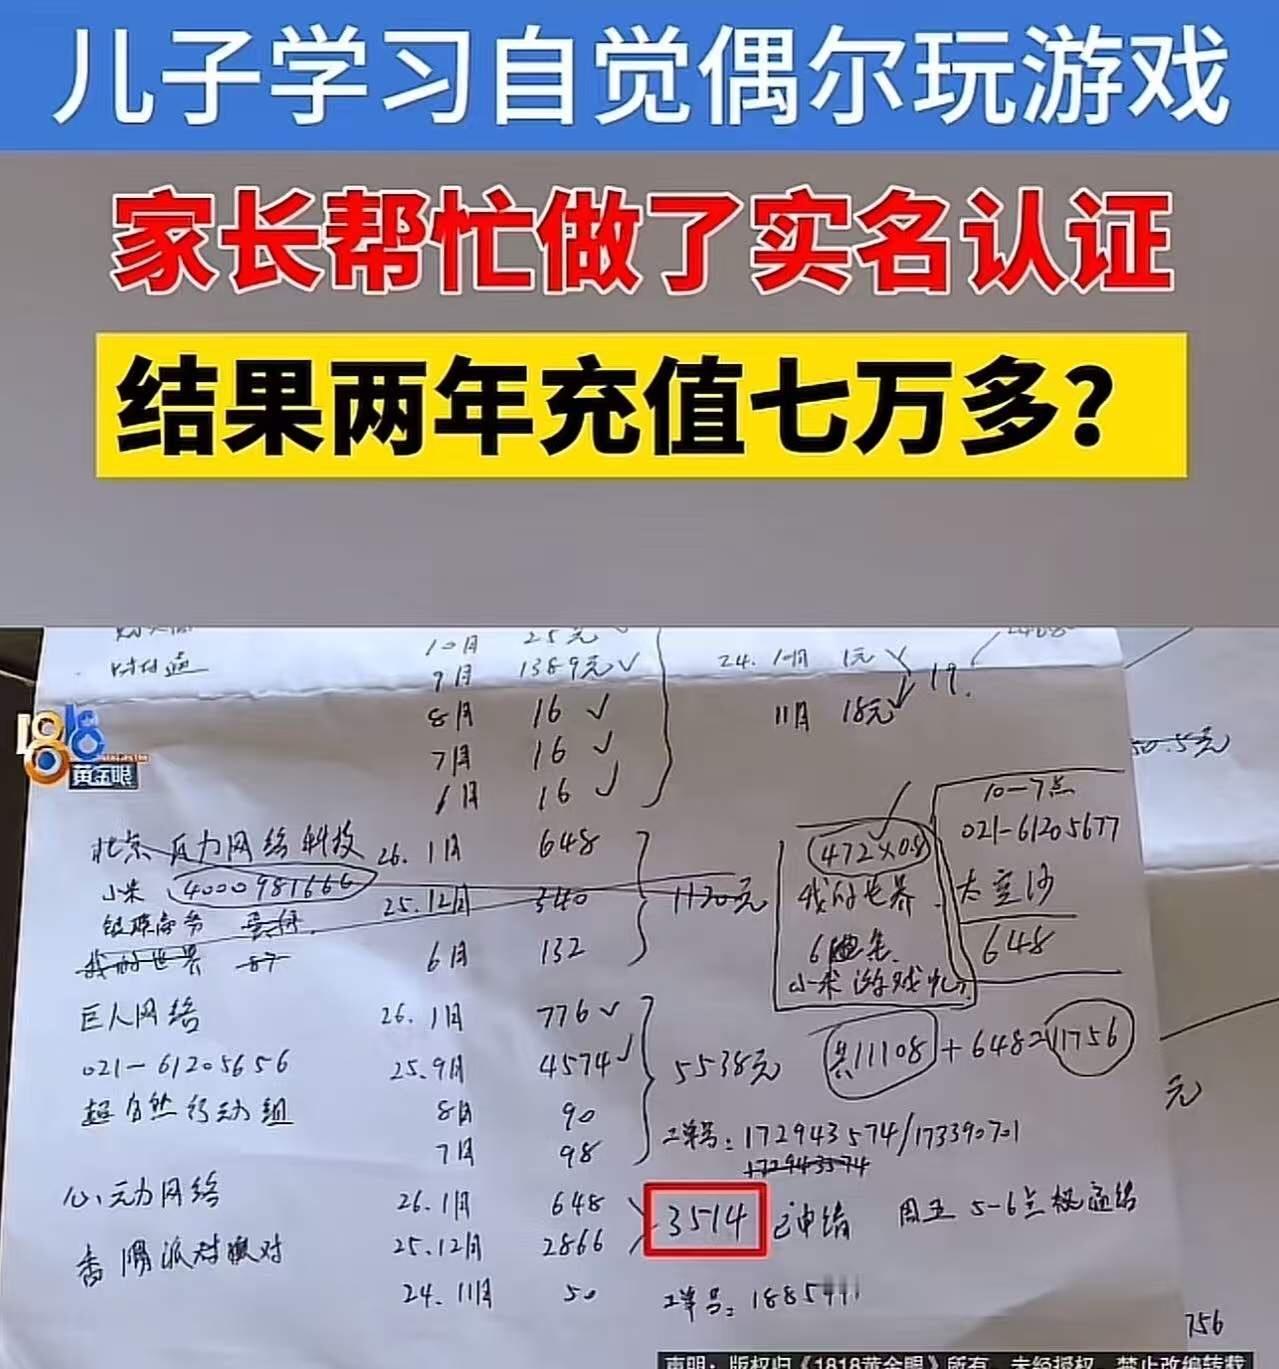 儿子学习自觉偶尔玩游戏
家长帮忙做了实名认证
结果两年充值七万多？
10月 25元
财付通 9月 1389元✓ 24.10月 1元
8月 16 ✓ 11月 18元 19.
7月 16 ✓
6月 16 ✓
1818
黄金眼
50.5元
北京瓦力网络科技 26.1月 648
小米 4000981666 25.12月 340 1120元
银联商务
我的世界 87 6月 132
472×0.8
我的世界
小米游戏
10-7点
021-61205677
太空沙
648
巨人网络 26.1月 776✓
021-61205656 25.9月 4574✓ 5538元 共11108+648=11756
超自然行动组 8月 90
7月 98
工单号：172943574/173390701
172943574
元
心动网络 26.1月 648 3514 已申请 周五 5-6点
香肠派对 25.12月 2866
24.11月 50 工单号：1885
756
声明：版权归《1818黄金眼》所有，未经授权，禁止改编转载